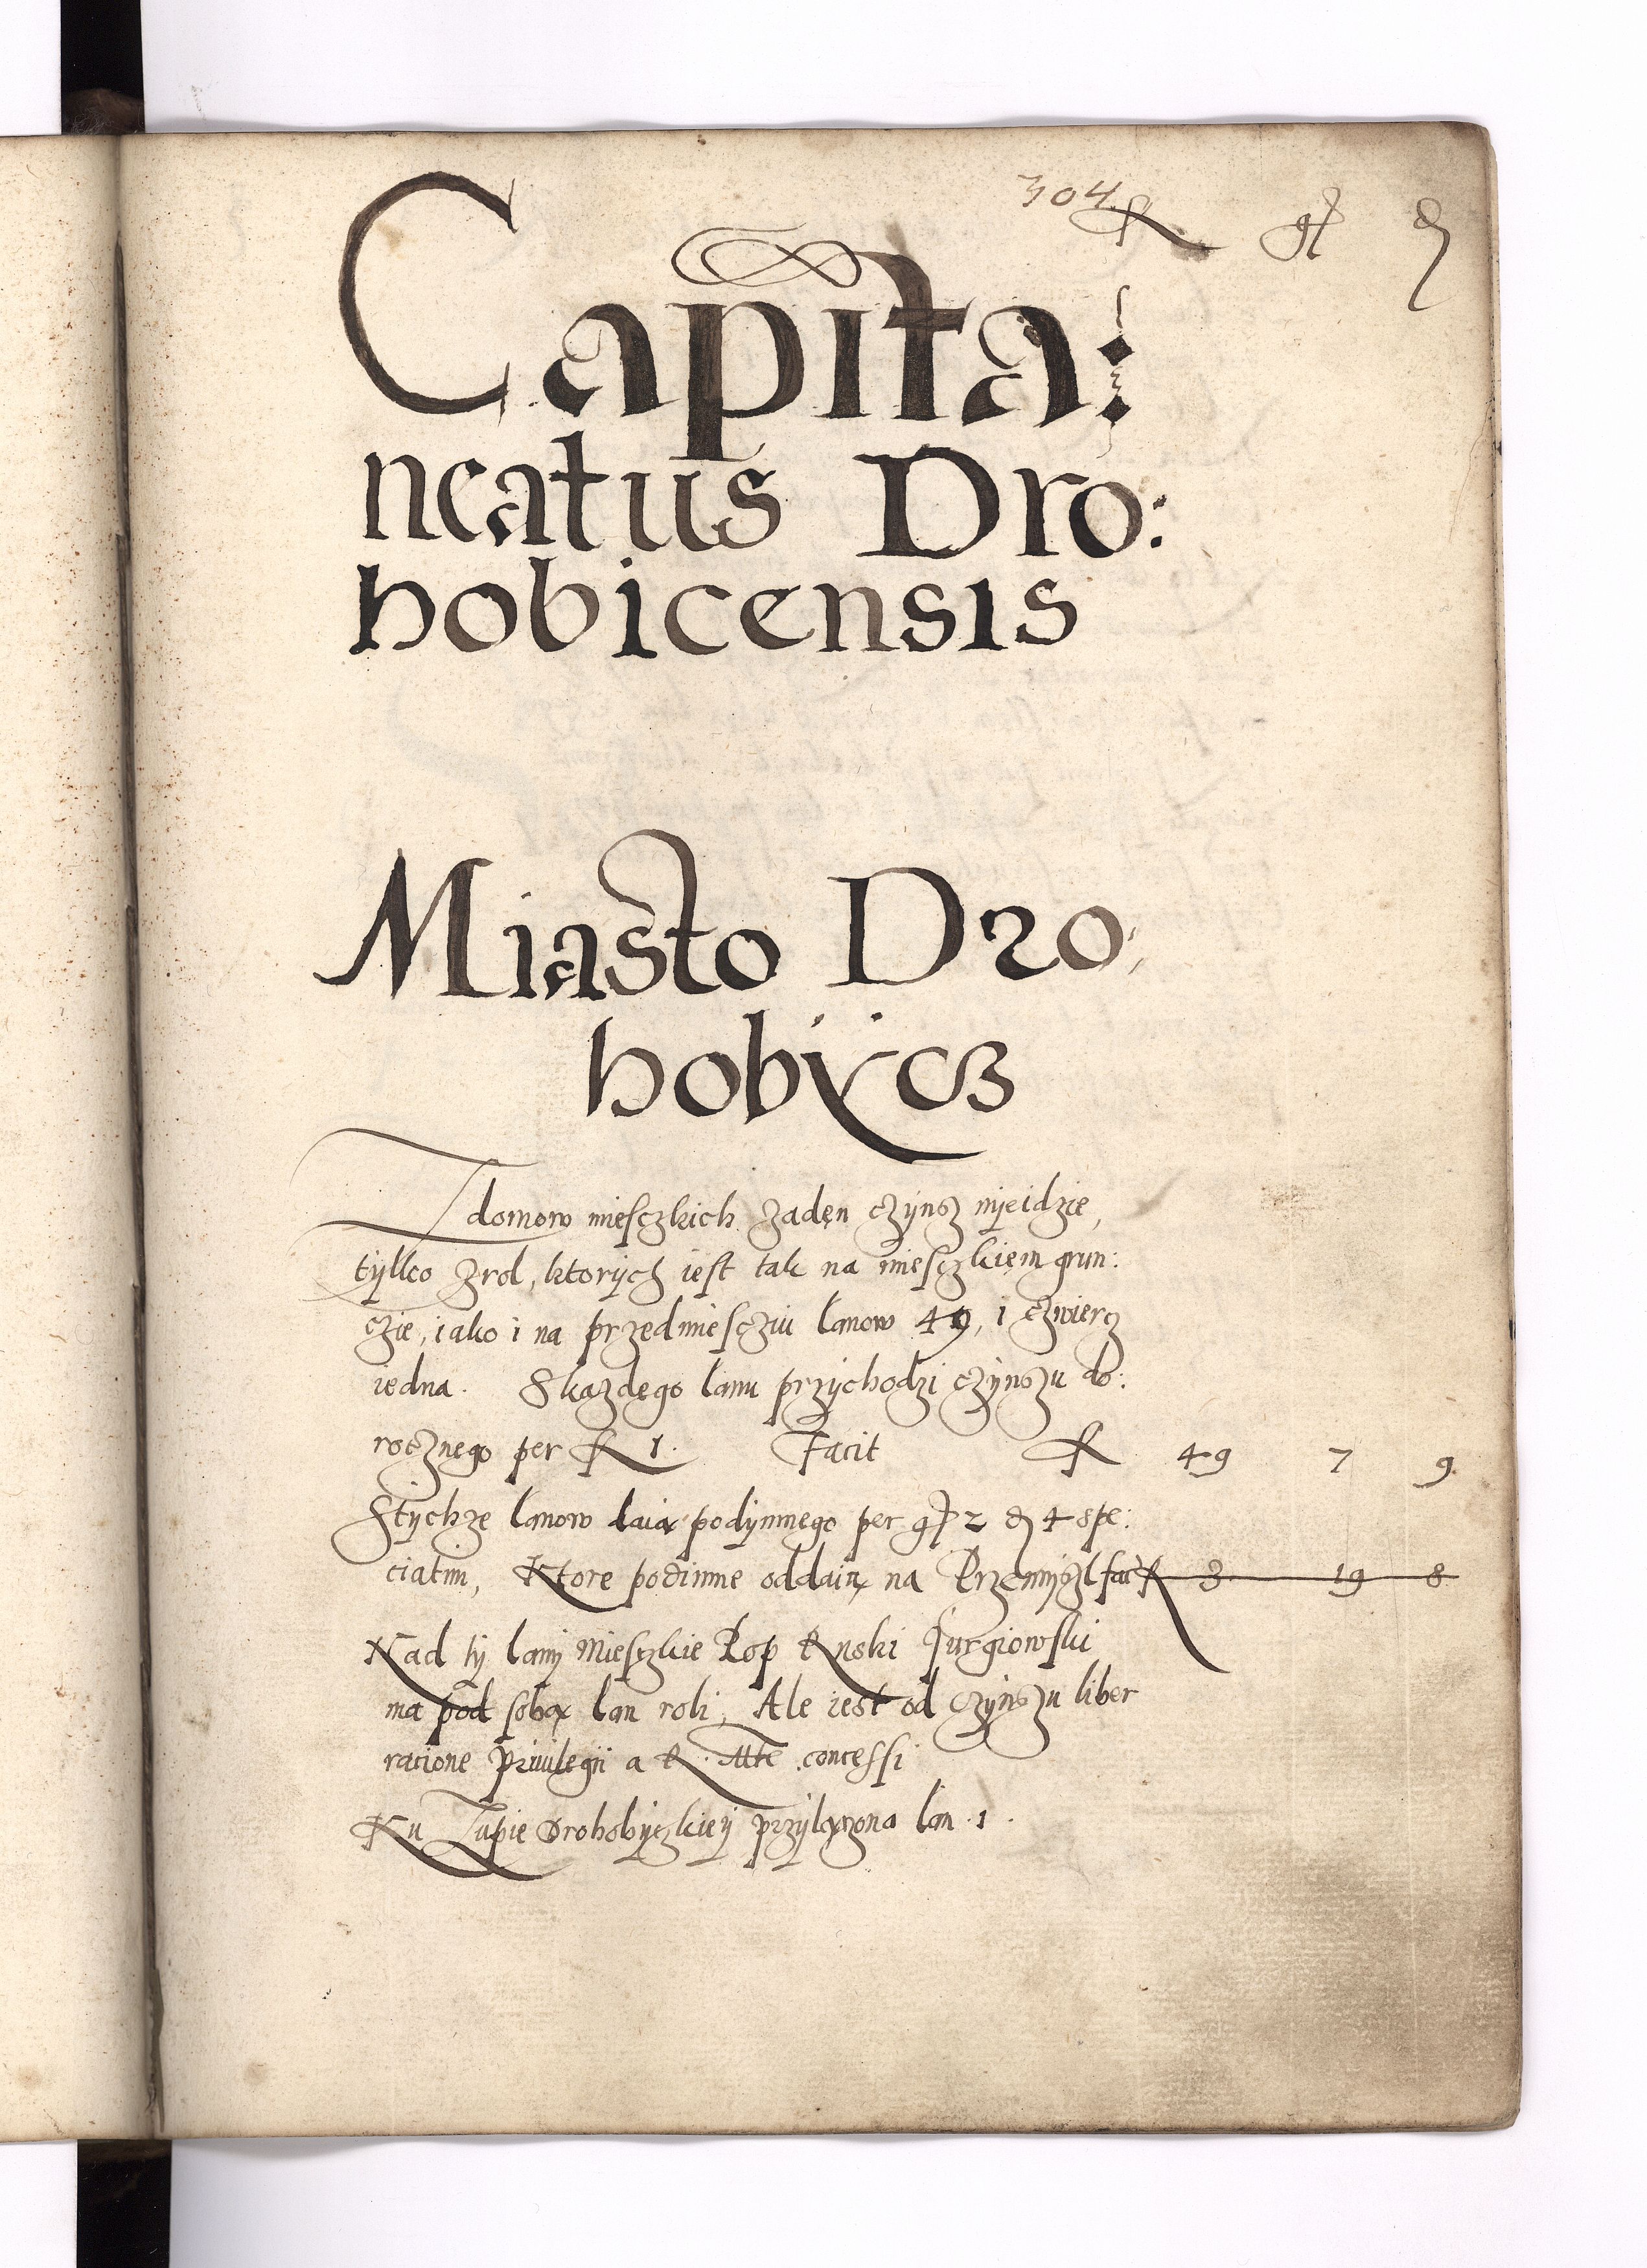 304
fl gr d
Capita:
neatus Dro:
hobicensis
Miasto Dro:
hobycz
Z domow miesczkich zaden czynsz nye idzie,
tylko Zrol, ktorych iest tak na miesczkiem grun:
czie, iako i na przedmiesciu lanow 49, i czwiercz
iedna. Skazdego lanu przychodzi czynszu do:
rocznego per fl 1. Facit fl 49 7 9
Stychze lanow daią podymnego per gr 2 d 4 spe:
ciatim, Ktore podimne oddaią na Przemyszl fac fl 3 19 8
Nad ty lany Miesczkie Pop Ruski Jurgiowski
ma pod sobą lan roli, Ale iest od czynszu liber
racione priuilegii a R. Mte concessi
Ku Zupie Drohobyczkiey przyłączona lan 1.